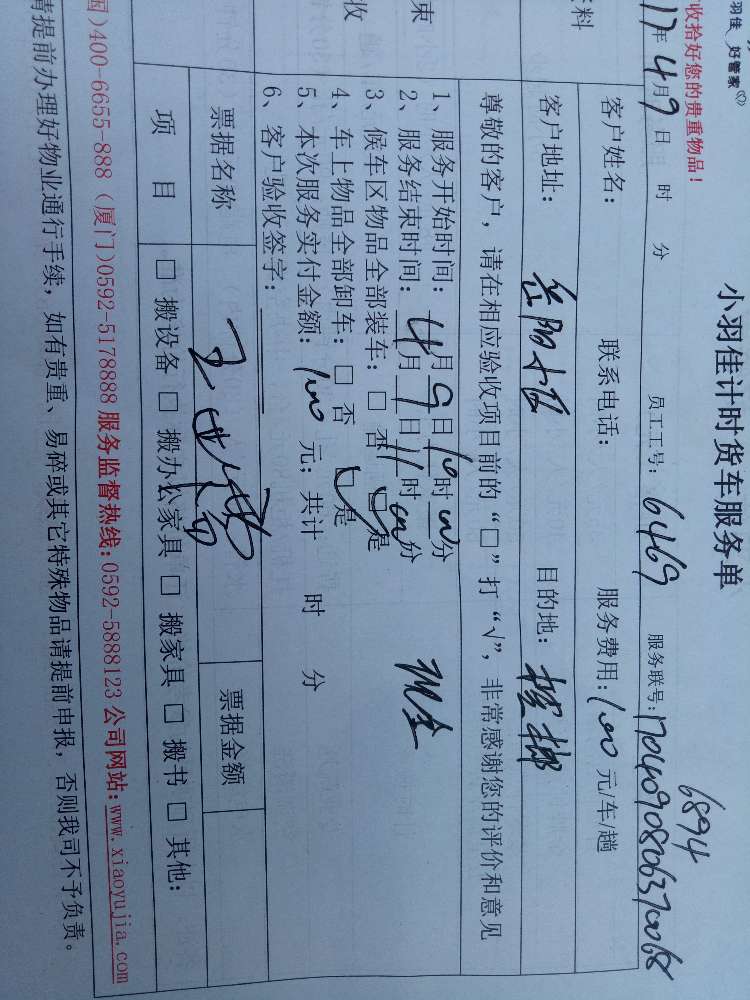 羽佳 好管家
小羽佳计时货车服务单
收拾好您的贵重物品!
6894
17年4月9日 时 分 员工工号: 6469 服务联号: 1704090806370068
料
客户姓名: 联系电话: 服务费用: 100 元/车/趟
客户地址: 岳阳小区 目的地:
尊敬的客户，请在相应验收项目前的“□”打“√”，非常感谢您的评价和意见
束
收
1、服务开始时间: 4月9日10时00分
2、服务结束时间: 月 日11时00分 现金
3、候车区物品全部装车: □ 否 □是
4、车上物品全部卸车: □ 否 □是
5、本次服务实付金额: 100 元; 共计 时 分
6、客户验收签字:
票据名称 票据金额
项 目 □ 搬设备 □ 搬办公家具 □ 搬家具 □ 搬书 □ 其他:
国)400-6655-888 (厦门)0592-5178888 服务监督热线:0592-5888123 公司网站:www.xiaoyujia.com
请提前办理好物业通行手续，如有贵重、易碎或其它特殊物品请提前申报，否则我司不予负责。